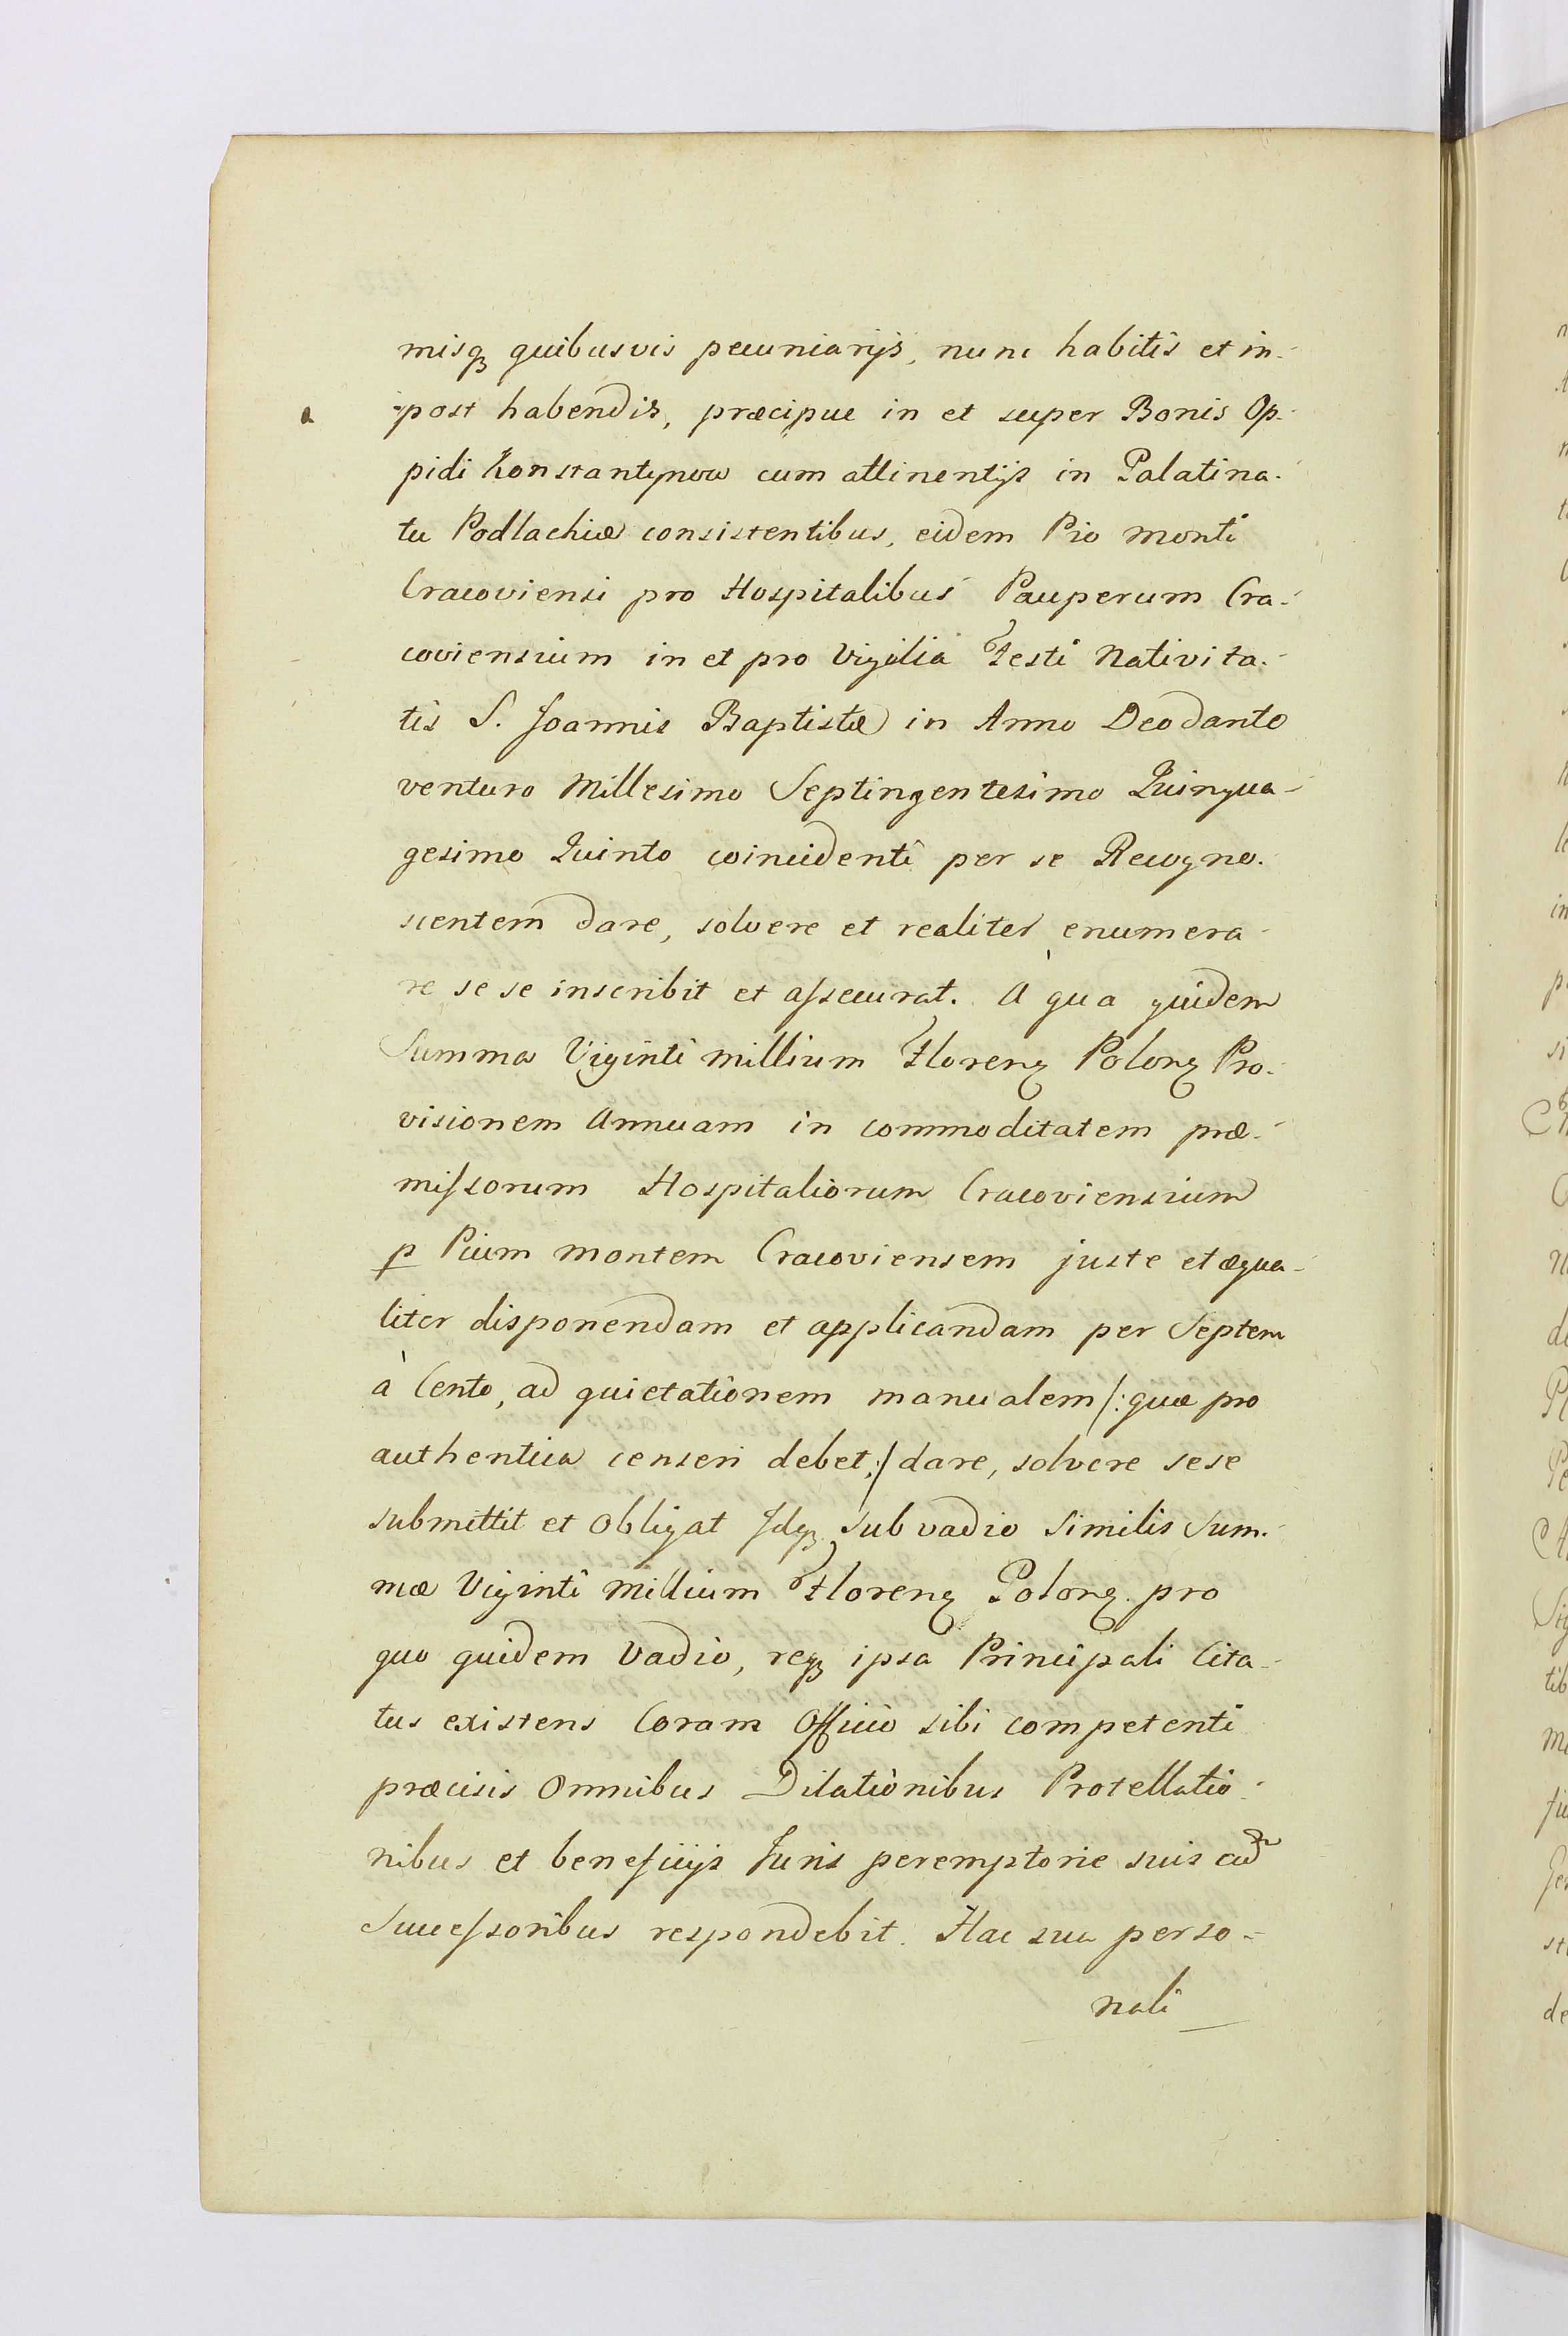 misq₃ quibusvis pecuniarijs, nunc habitis et in-
post habendis, præcipue in et super Bonis Op-
pidi Konstantynow cum attinentijs in Palatina-
tu Podlachiæ consistentibus, eidem Pio Monti
Cracoviensi pro Hospitalibus Pauperum Cra-
coviensium in et pro Vigilia Festi Nativita-
tis S. Joannis Baptistæ in Anno Deo dante
venturo Millesimo Septingentesimo Quinqua-
gesimo Quinto coincidenti per se Recogno-
scentem dare, solvere et realiter enumera-
re se se inscribit et assecurat. À qua quidem
Summa Viginti Millium Floren Polon Pro-
visionem Annuam in commoditatem præ-
missorum Hospitaliorum Cracoviensium
p Pium Montem Cracoviensem juste et æqua-
liter disponendam et applicandam per Septem
à Cento, ad quietationem manualem /: quæ pro
authentica censeri debet :/ dare, solvere sese
submittit et Obligat Idq₃ sub vadio Similis Sum-
mæ Viginti Millium Floren Polon. pro
quo quidem Vadio, req₃ ipsa Principali Cita-
tus existens Coram Officio sibi competenti
præcisis Omnibus Dilationibus Protellatio-
nibus et beneficijs Juris peremptorie suis cu
Successoribus respondebit. Hac sua perso-
nali